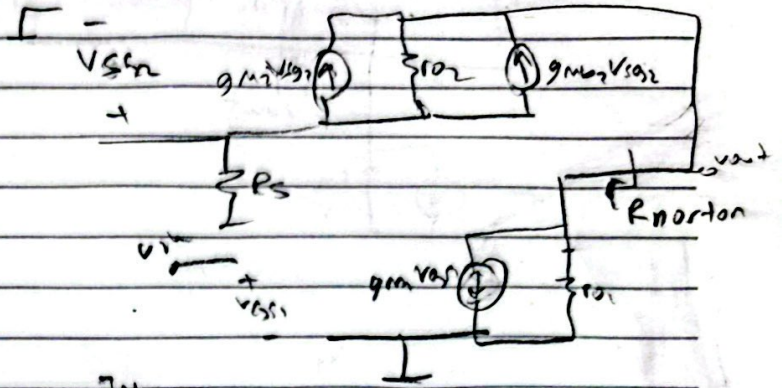 -
VSG2
+
gm2 VSG2
ro2
gmb2 VSG2
RS
vout
Rnorton
+
VGS1
gm VGS1
ro1